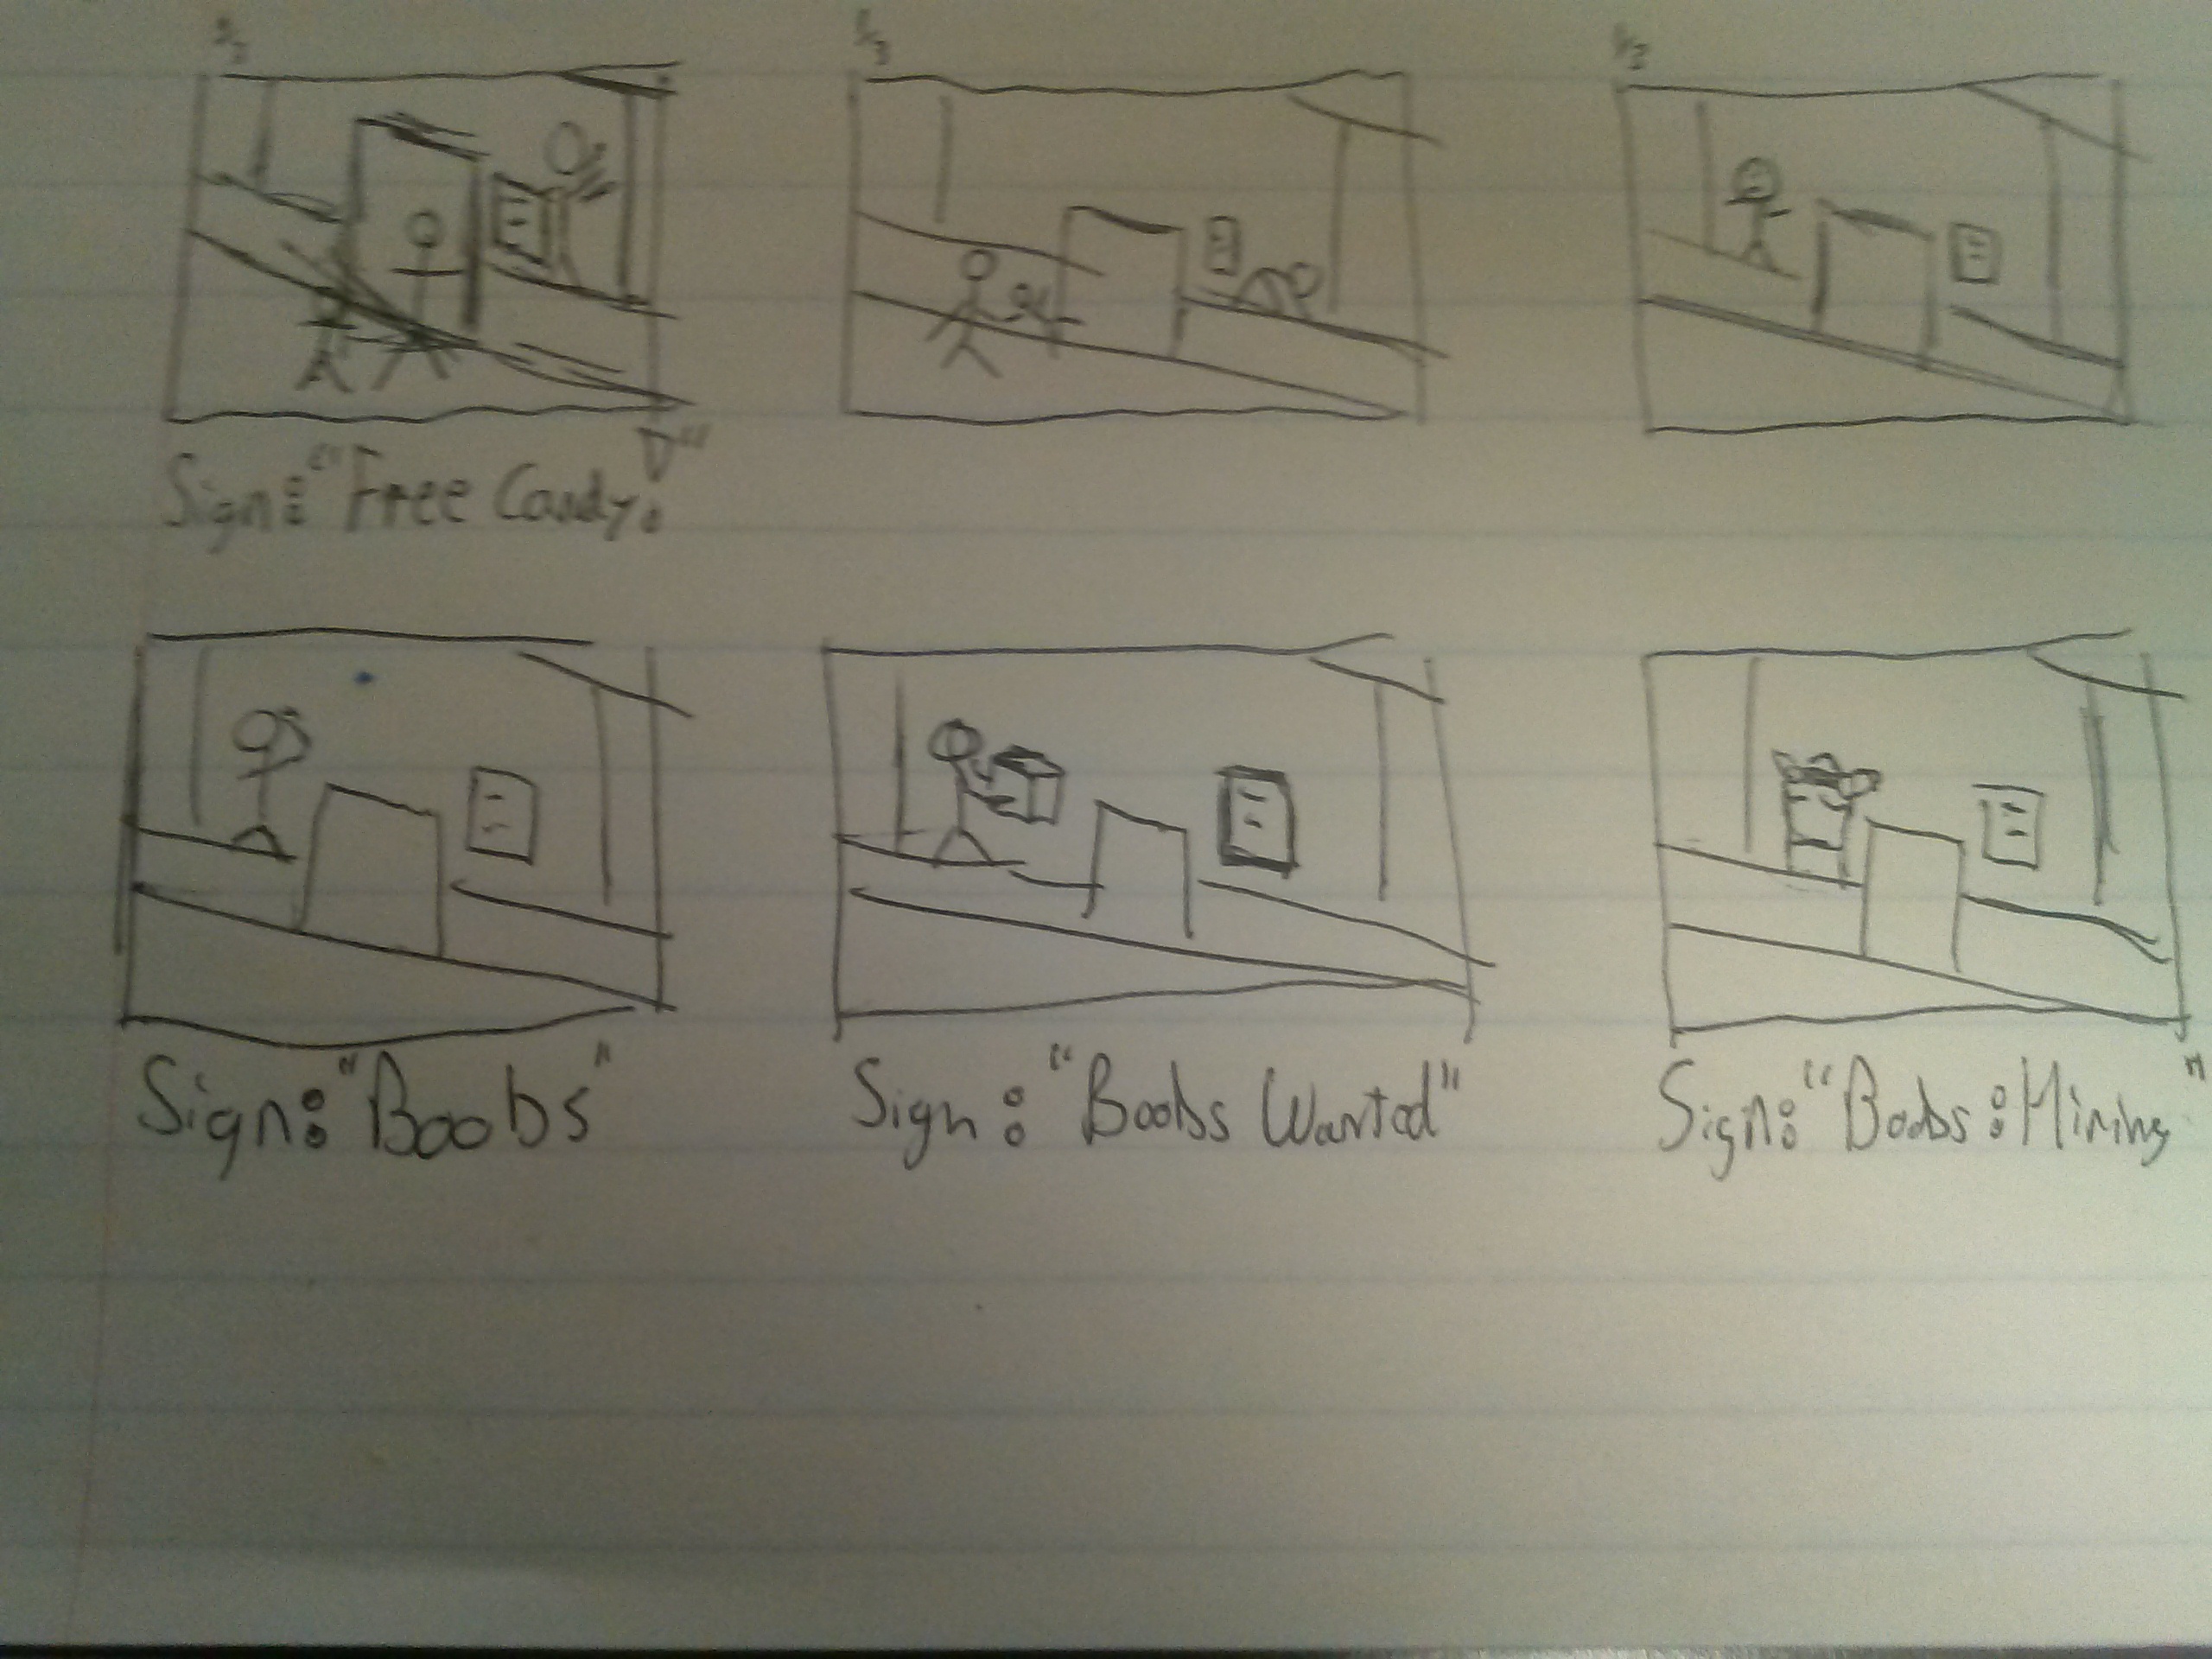 Sign: "Free Candy!"
Sign: "Boobs"
Sign: "Boobs Wanted"
Sign: "Boobs: Mining"